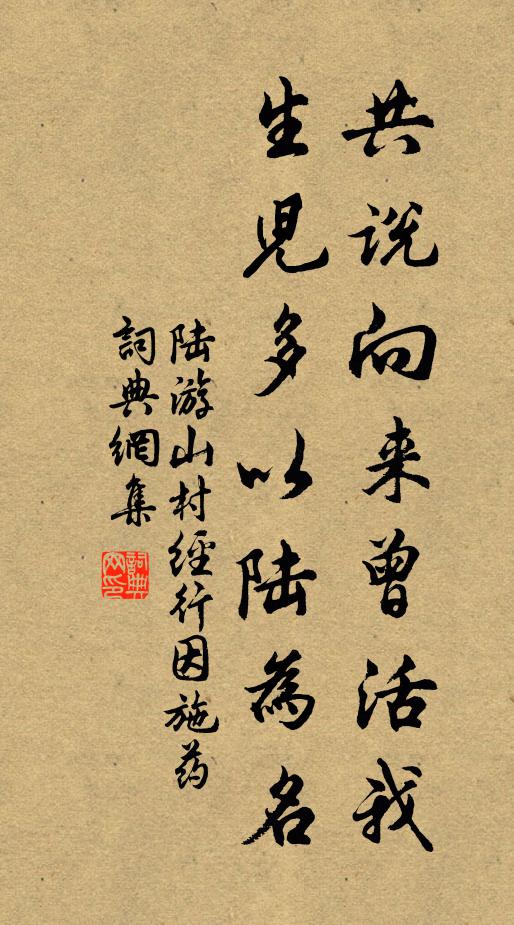 共说向来曾活我
生児多以陆為名
陆游山村經行因施药
詞典網集
詞典网印